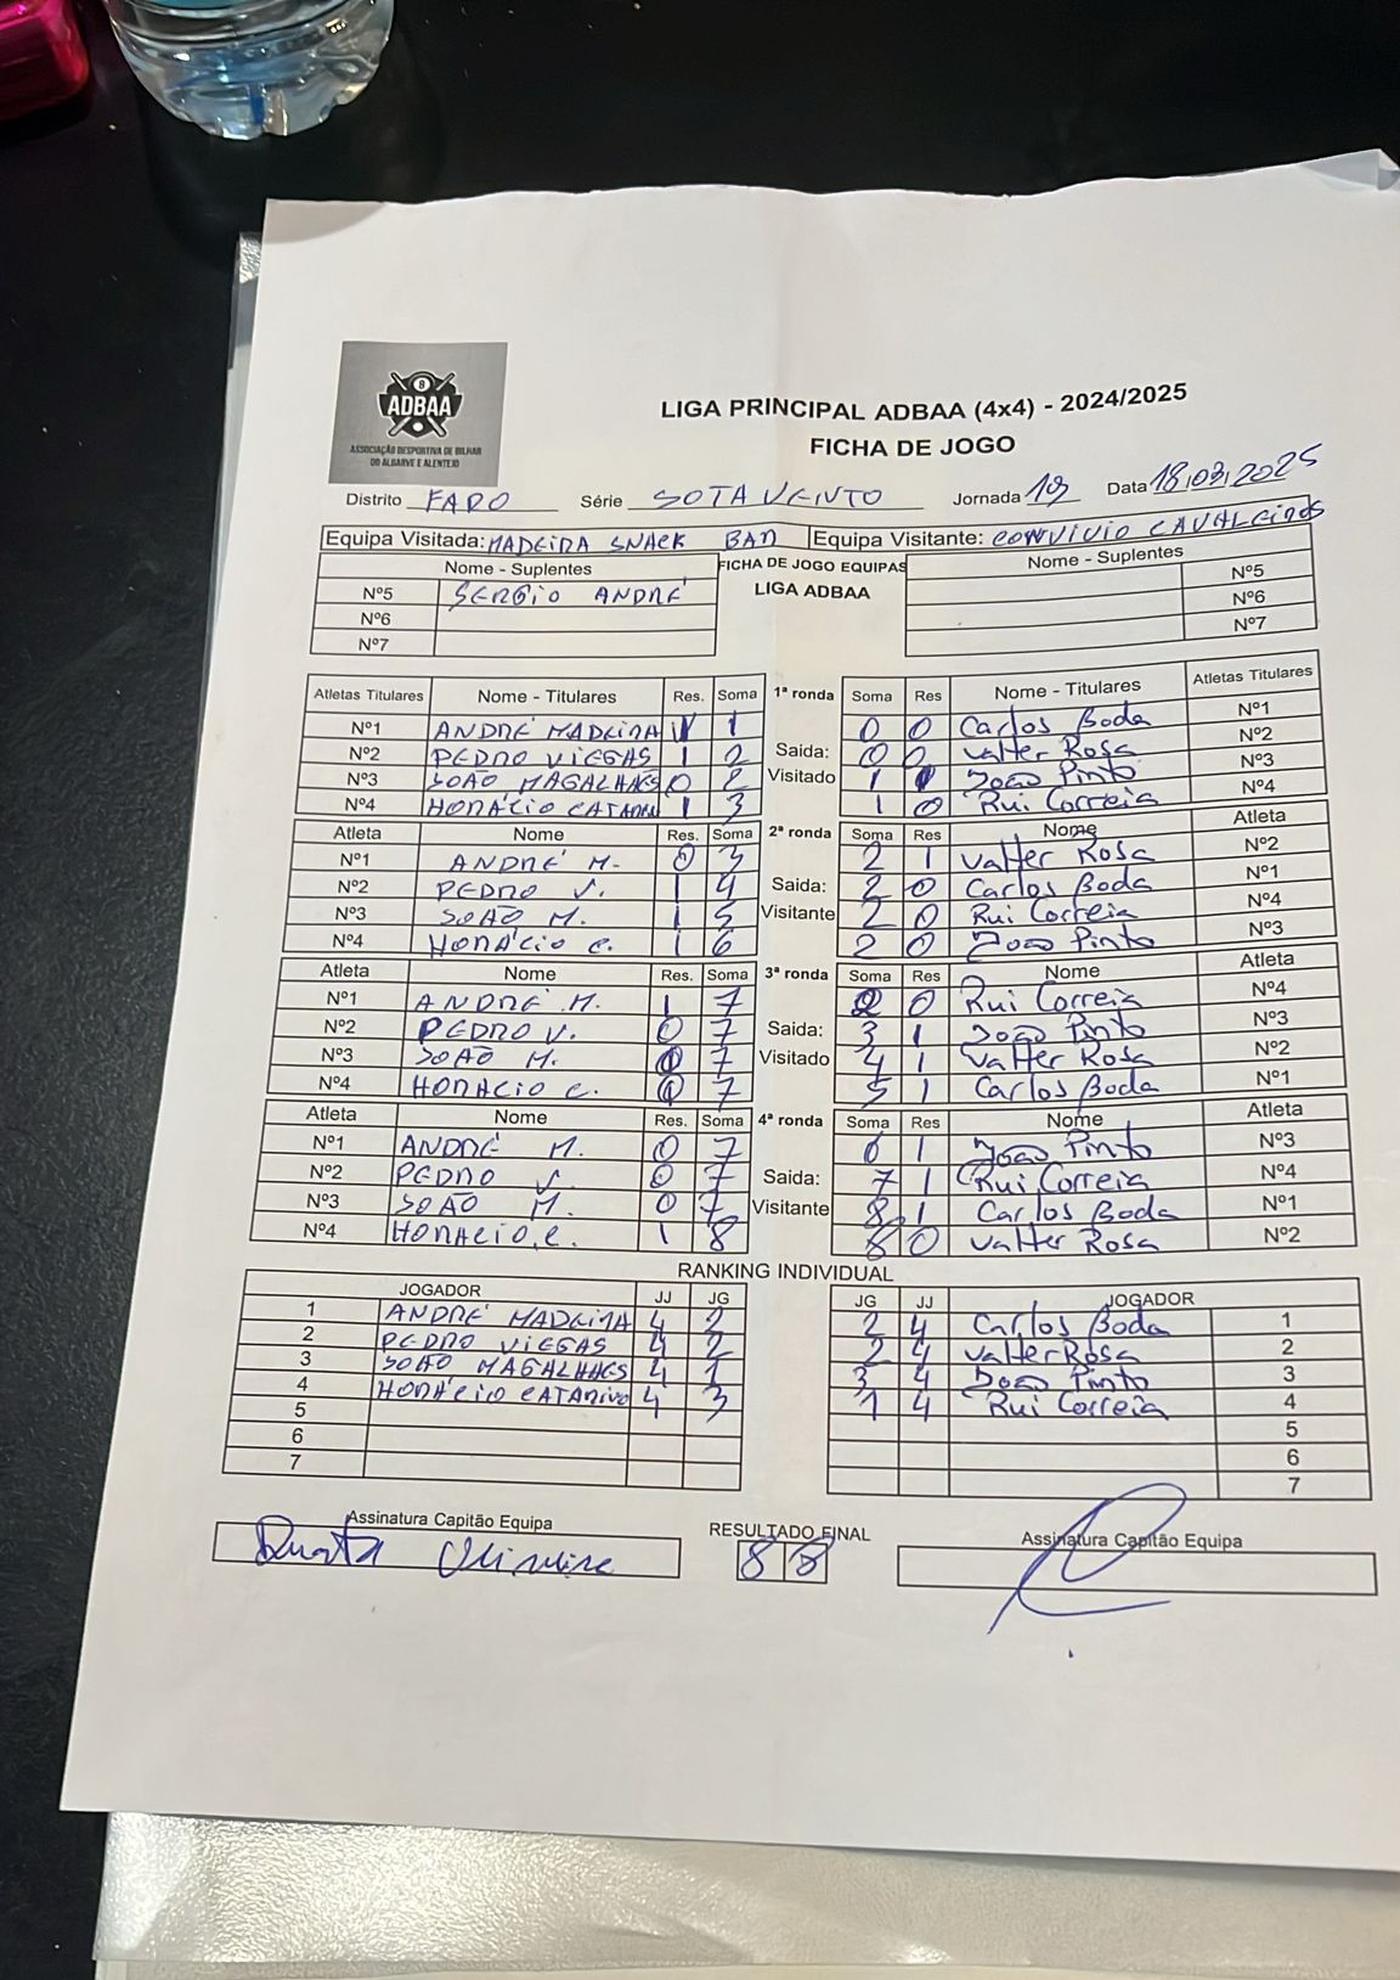 8
ADBAA
ASSOCIAÇÃO DESPORTIVA DE BILHAR
DO ALGARVE E ALENTEJO
LIGA PRINCIPAL ADBAA (4x4) - 2024/2025
FICHA DE JOGO
Distrito FARO Série SOTAVENTO Jornada Data 18,03,2025
Equipa Visitada: MADEIRA SNACK BAR Equipa Visitante: CONVIVIO CAVALEIROS
Nome - Suplentes FICHA DE JOGO EQUIPAS Nome - Suplentes
Nº5 SERGIO ANDRÉ LIGA ADBAA Nº5
Nº6 Nº6
Nº7 Nº7
Atletas Titulares Nome - Titulares Res. Soma 1ª ronda Soma Res Nome - Titulares Atletas Titulares
Nº1 ANDRÉ MADEIRA 1 1 0 0 Carlos Boda Nº1
Nº2 PEDRO VIEGAS 1 2 Saida: 0 0 Valter Rosa Nº2
Nº3 JOÃO MAGALHAES 0 2 Visitado 1 1 João Pinto Nº3
Nº4 HORÁCIO CATARINO 1 3 1 0 Rui Correia Nº4
Atleta Nome Res. Soma 2ª ronda Soma Res Nome Atleta
Nº1 ANDRÉ M. 0 3 2 1 Valter Rosa Nº2
Nº2 PEDRO V. 1 4 Saida: 2 0 Carlos Boda Nº1
Nº3 JOÃO M. 1 5 Visitante 2 0 Rui Correia Nº4
Nº4 HORÁCIO C. 1 6 2 0 João Pinto Nº3
Atleta Nome Res. Soma 3ª ronda Soma Res Nome Atleta
Nº1 ANDRÉ M. 1 7 2 0 Rui Correia Nº4
Nº2 PEDRO V. 0 7 Saida: 3 1 João Pinto Nº3
Nº3 JOÃO M. 0 7 Visitado 4 1 Valter Rosa Nº2
Nº4 HORACIO C. 0 7 5 1 Carlos Boda Nº1
Atleta Nome Res. Soma 4ª ronda Soma Res Nome Atleta
Nº1 ANDRÉ M. 0 7 6 1 João Pinto Nº3
Nº2 PEDRO V. 0 7 Saida: 7 1 Rui Correia Nº4
Nº3 JOÃO M. 0 7 Visitante 8 1 Carlos Boda Nº1
Nº4 HORACIO C. 1 8 8 0 Valter Rosa Nº2
RANKING INDIVIDUAL
JOGADOR JJ JG JG JJ JOGADOR
1 ANDRÉ MADEIRA 4 2 2 4 Carlos Boda 1
2 PEDRO VIEGAS 4 2 2 4 Valter Rosa 2
3 JOÃO MAGALHAES 4 1 3 4 João Pinto 3
4 HORÁCIO CATARINO 4 3 1 4 Rui Correia 4
5 5
6 6
7 7
Assinatura Capitão Equipa RESULTADO FINAL Assinatura Capitão Equipa
8 8